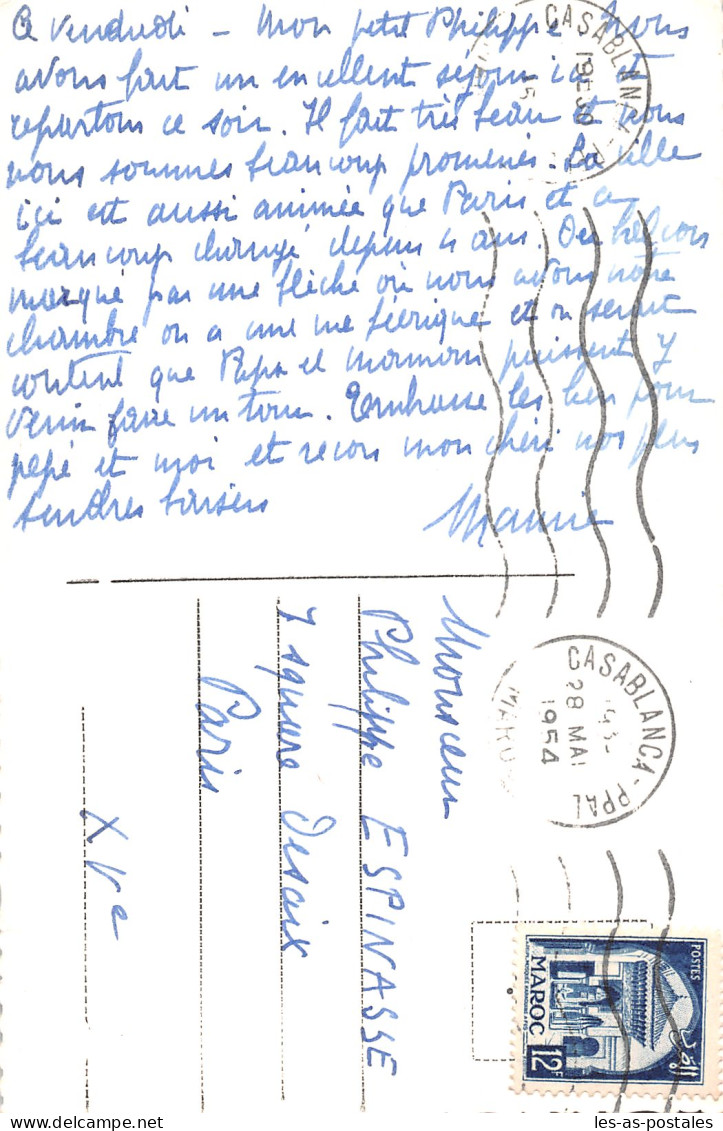 Ce vendredi - Mon petit Philippe Nous
avons fait un excellent séjour ici et
repartons ce soir. Il fait très beau et nous
nous sommes beaucoup promenés. La ville
ici est aussi animée que Paris et a
beaucoup changé depuis 4 ans. Du balcon
marqué par une flèche où nous avons notre
chambre on a une vue féerique et on serait
content que Papa et maman puissent y
venir faire un tour. Embrasse les bien pour
pépé et moi et reçois mon chéri nos plus
tendres baisers
Mamie
Monsieur
Philippe ESPINASSE
7 square Desaix
Paris
XVe
CASABLANCA
CASABLANCA-PPAL
28 MAI
1954
MAROC
POSTES
MAROC
12F
les-as-postales.com